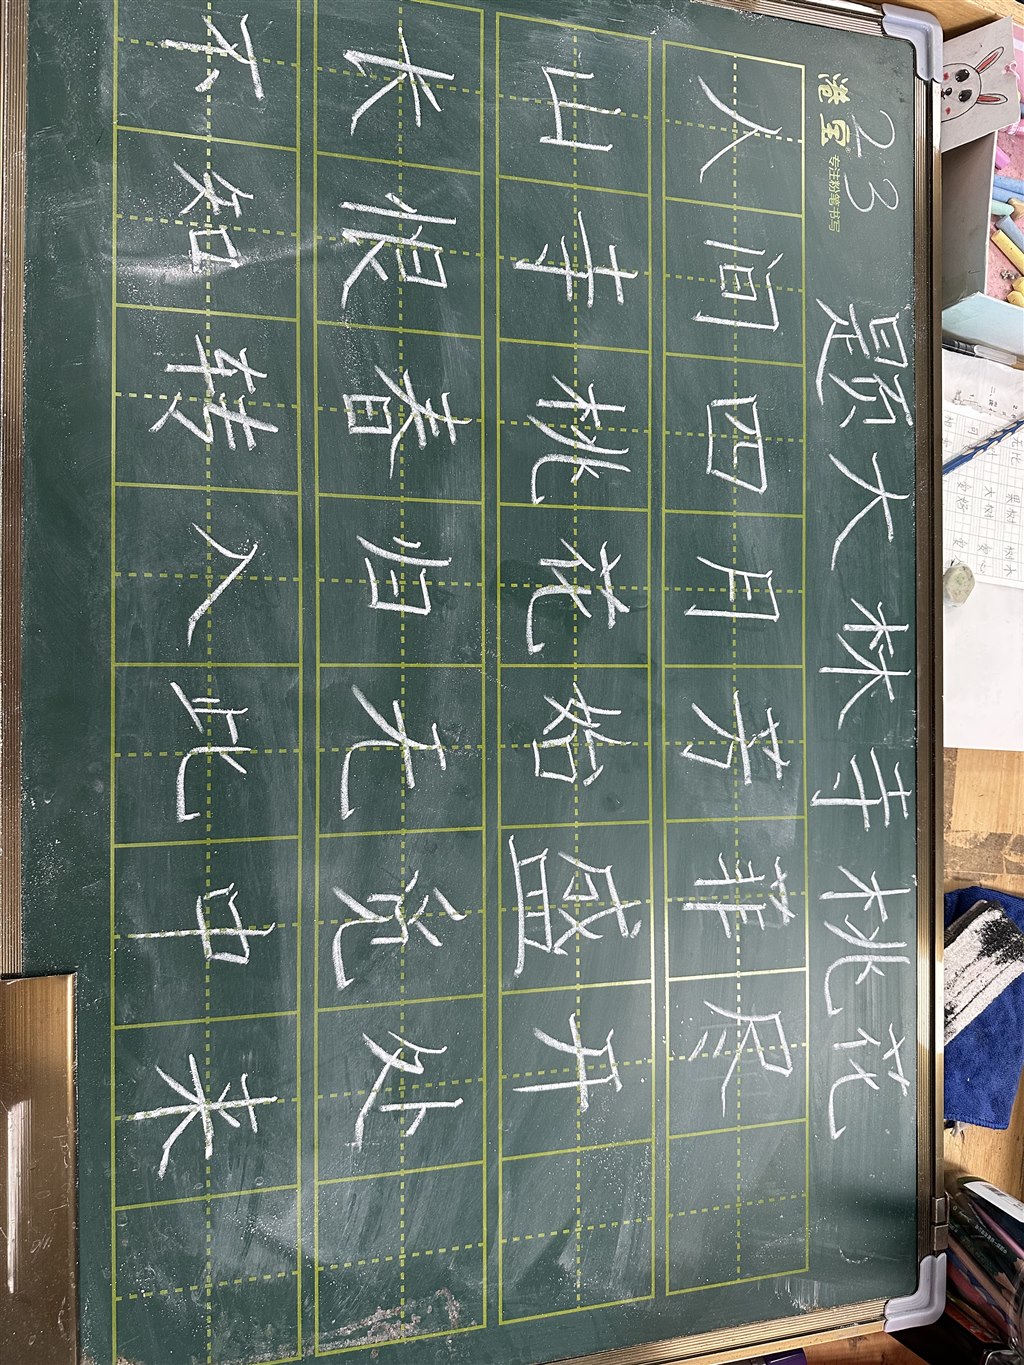 港宝 专注粉笔书写
23
题大林寺桃花
人间四月芳菲尽
山寺桃花始盛开
长恨春归无觅处
不知转入此中来